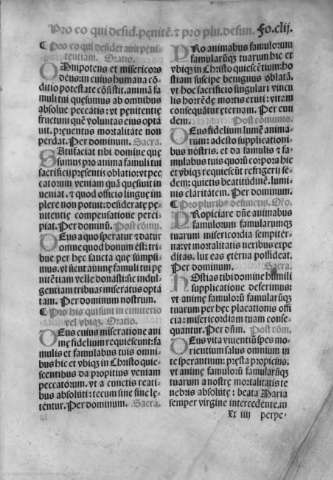 Pro eo qui desid. penitē. ⁊ pro plu. defun. Fo. clij.
Pro eo qui desiderat penitentiam. Oratio.
OMnipotens et misericors
deus: in cuius humana cōditio
potestate cōsistit: animā famuli
tui quesumus ab omnibus
absolue peccatis: vt penitentie
fructum quē voluntas eius optauit,
preuentus mortalitate non
perdat. Per dominum. Secra.
SAtisfaciat tibi domine
quesumus pro anima famuli tui
sacrificii presentis oblatio: vt peccatorum
veniam quā quesiuit inueniat.
⁊ quod officio lingue implere
non potuit: desiderate penitentie
compensatione percipiat.
Per dominū. Post cōmu.
DEus a quo speratur ⁊ datur
omne quod bonum est: tribue
per hec sancta que sumpsimus,
vt sicut anime famuli tui penitentiam
velle donasti: sic indulgentiam
tribuas miseratus optatam.
Per dominum nostrum.
Pro his qui sunt in cimiterio
vel vbiqz. Oratio.
DEus cuius miseratione anime
fidelium requiescunt: famulis
et famulabus tuis omnibus
hic et vbiqz in Christo quiescentibus
da propitius veniam
peccatorum. vt a cunctis reatibus
absoluti: tecum sine fine letentur.
Per dominum. Secra.
PRo animabus famulorum
famularūqz tuarum hic et
vbiqz in Christo quiescentium: hostiam
suscipe benignus oblatā.
vt hoc sacrificio singulari vinculis
horrēde mortis exuti: vitam
consequātur eternam. Per eundem.
Post cōmunio.
DEus fidelium lumē animarum:
adesto supplicationibus
nostris, et da famulis ⁊ famulabus
tuis quorū corpora hic
et vbiqz requiescūt refrigerii sedem:
quietis beatitudinē: luminis
claritatem. Per dominum.
Pro pluribus defunctis. Oro.
PRopiciare dn̄e animabus
famulorum famularumqz
tuarum misericordia sempiterna:
vt mortalitatis nexibus expeditas,
lux eas eterna possideat.
Per dominum. Secra.
HOstias tibi domine humili
supplicatione deferimus:
vt anime famulorū famularūqz
tuarum per hec placationis officia:
misericordiam tuam consequantur.
Per dn̄m. Post cōm.
DEus vita viuentiū: spes morientium:
salus omnium in
te sperantium: presta propicius,
vt anime famulorū famularūqz
tuarum a nostre mortalitatis tenebris
absoluti: beata Maria
semper virgine intercedente. in
perpe-